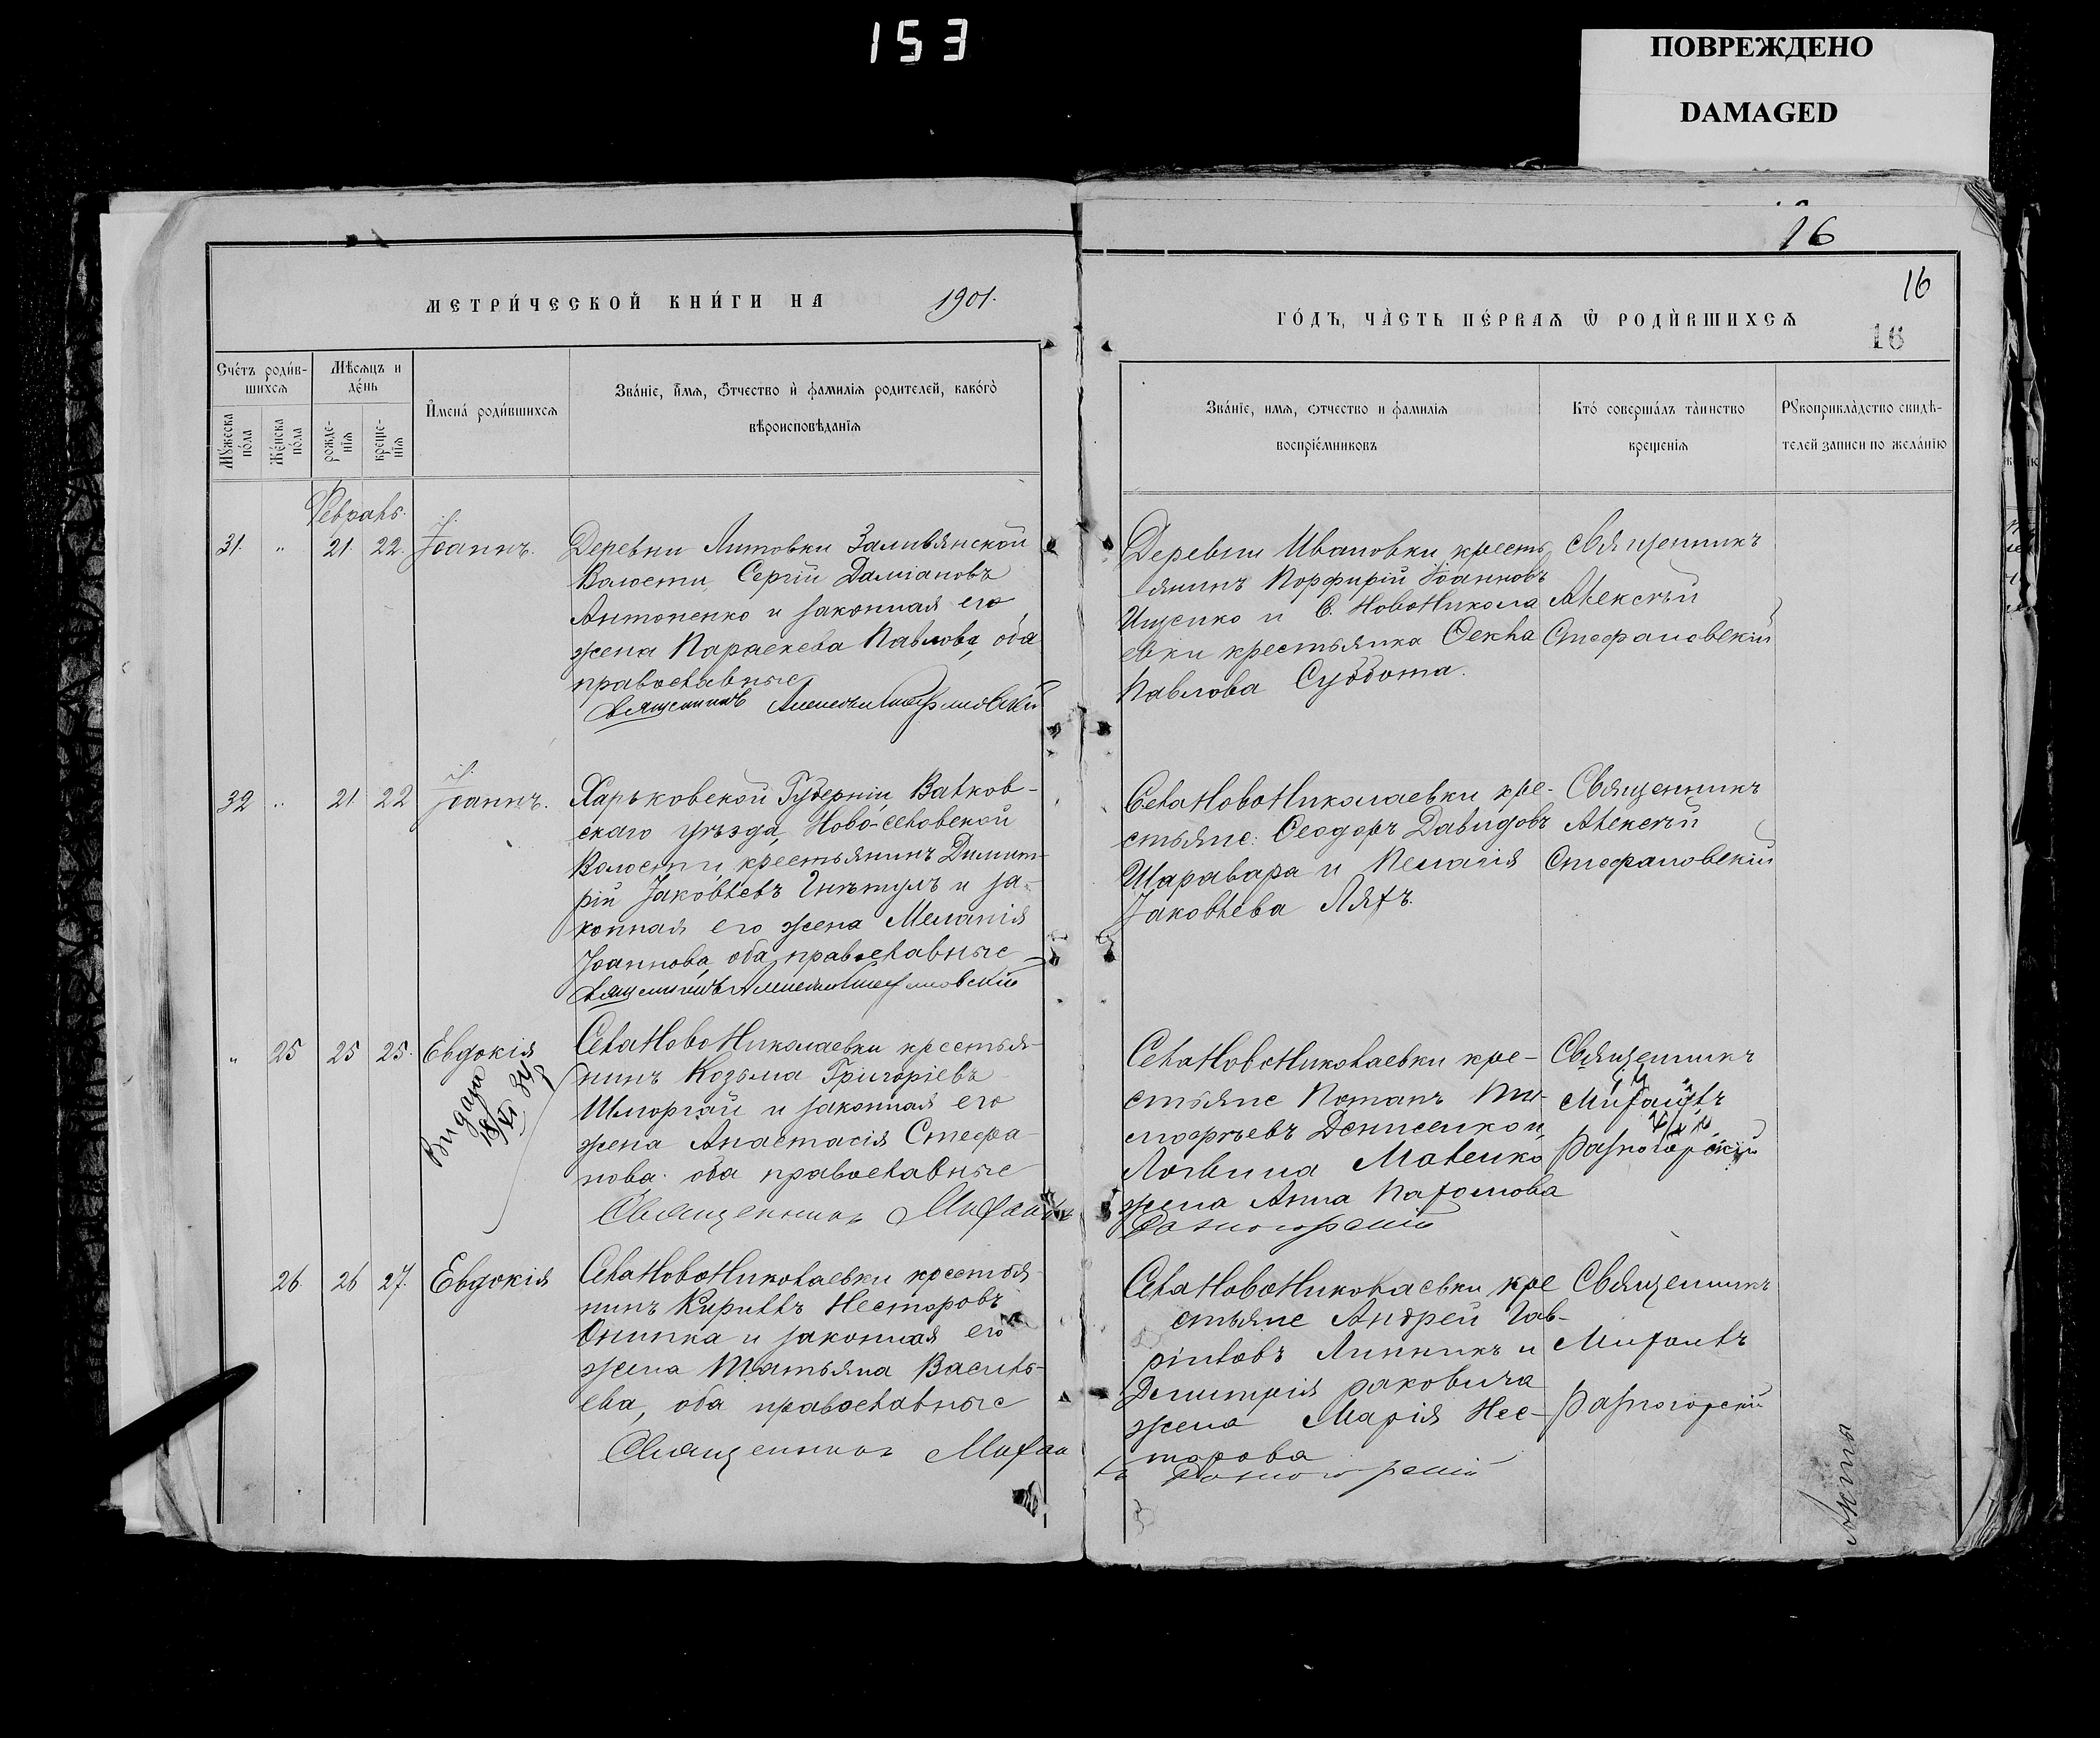 153
ПОВРЕЖДЕНО
DAMAGED
16
16
16
МЕТРИ́ЧЕСКОЙ КНИ́ГИ НА 1901.
ГО́ДЪ, ЧА̀СТЬ ПЕ́РВАѦ Ѽ РОДИ́ВШИХСѦ
Счéтъ роди́в-
шихсѧ
Мѣсѧцъ и
дéнь
Мꙋжеска
пóла
Жéнска
пóла
рожде-
нїѧ
креще-
нїѧ
И҆мена́ роди́вшихсѧ
Зва́нїе, и҆́мѧ, ѻ҆́тчество и҆ фамилїѧ родителей, како́гѡ
вѣроисповѣданїѧ
Зва́нїе, имѧ, ѻтчество и фамилїѧ
воспрїе́мниковъ
Кто́ соверша́лъ та́инство
крещенїѧ
Рꙋкоприкла́дство свидѣ-
телей записи по жела́нїю
Февраль.
31. " 21. 22. Іоаннъ.
Деревни Литовки
Волости, Сергій Даміановъ
Антоненко и законная его
жена Параскева Павлова, оба
православные
Священникъ Алексѣй Стефановскій
Деревни Ивановки кресть
янинъ Порфирій Іоанновъ
Ищенко и С. НовоНикола
евки крестьянка Ѳекла
Павлова Суббота.
Священникъ
Алексѣй
Стефановскій
32 " 21 22 Іоаннъ.
Харьковской Губерніи, Валков-
скаго уѣзда, Ново-
Волости, крестьянинъ Димит-
рій Іаковлевъ и за-
конная его жена Меланія
Іоаннова, оба православные
Священникъ Алексѣй Стефановскій
Села НовоНиколаевки кре-
стьяне: Ѳеодоръ Давидовъ
Шаравара и Пелагія
Іаковлева Ляхъ.
Священникъ
Алексѣй
Стефановскій
" 25 25 25. Евдокія
Видана
Села НовоНиколаевки крестья-
нинъ Козьма Григоріевъ
Шморгай и законная его
жена Анастасія Стефа-
нова. оба православные
Священникъ
Села НовоНиколаевки кре-
стьяне Потапъ Ти-
моѳеевъ Денисенко и
Логвина Матенко
жена Анна Пахомова
Разногорскій
Священникъ
Михаилъ
Разногорскій
26. 26 27. Евдокія
Села НовоНиколаевки крестья-
нинъ Кириллъ Несторовъ
Онипка и законная его
жена Татьяна Василь-
ева, оба православные
Священникъ
Села НовоНиколаевки кре
стьяне Андрей Гав-
ріиловъ Линникъ и
Димитрія
жена Марія Нес-
торова
Разногорскій
Священникъ
Михаилъ
Разногорскій